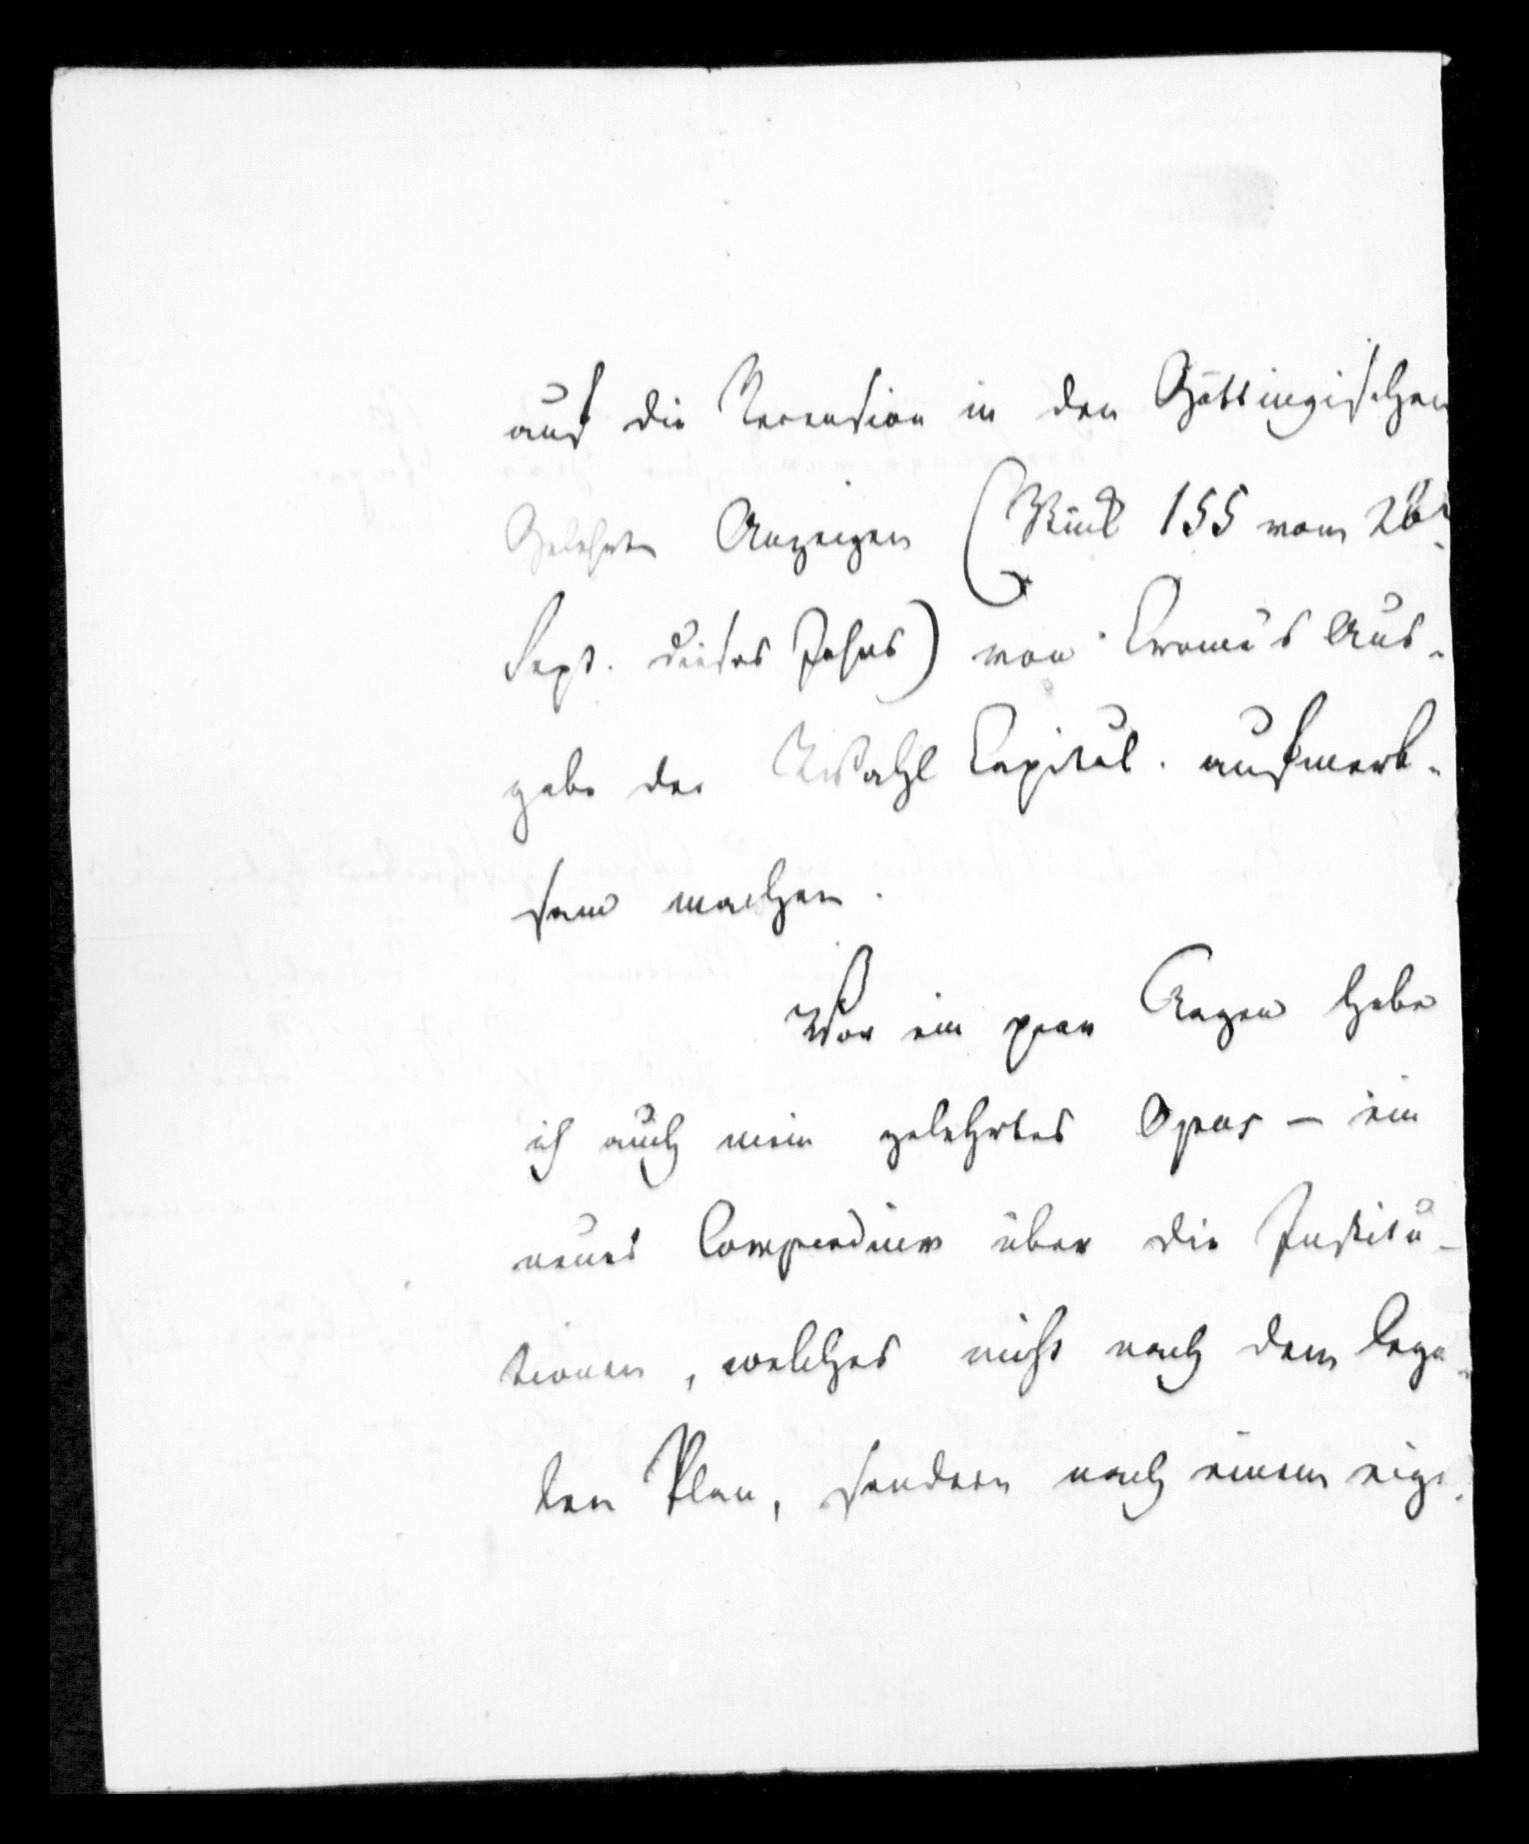 auf die Recension in den Göttingischen
Gelehrten Anzeigen (Stück 155 vom 26t
Sept. dieses Jahrs) von Crome's Aus-
gabe der Wahl Capitul. aufmerk-
sam machen.
Vor ein paar Tagen habe
ich auch mein gelehrtes Opus – ein
neues Compendium über die Institu-
tionen, welches nicht nach dem Lega-
len Plan, sondern nach einem eige-